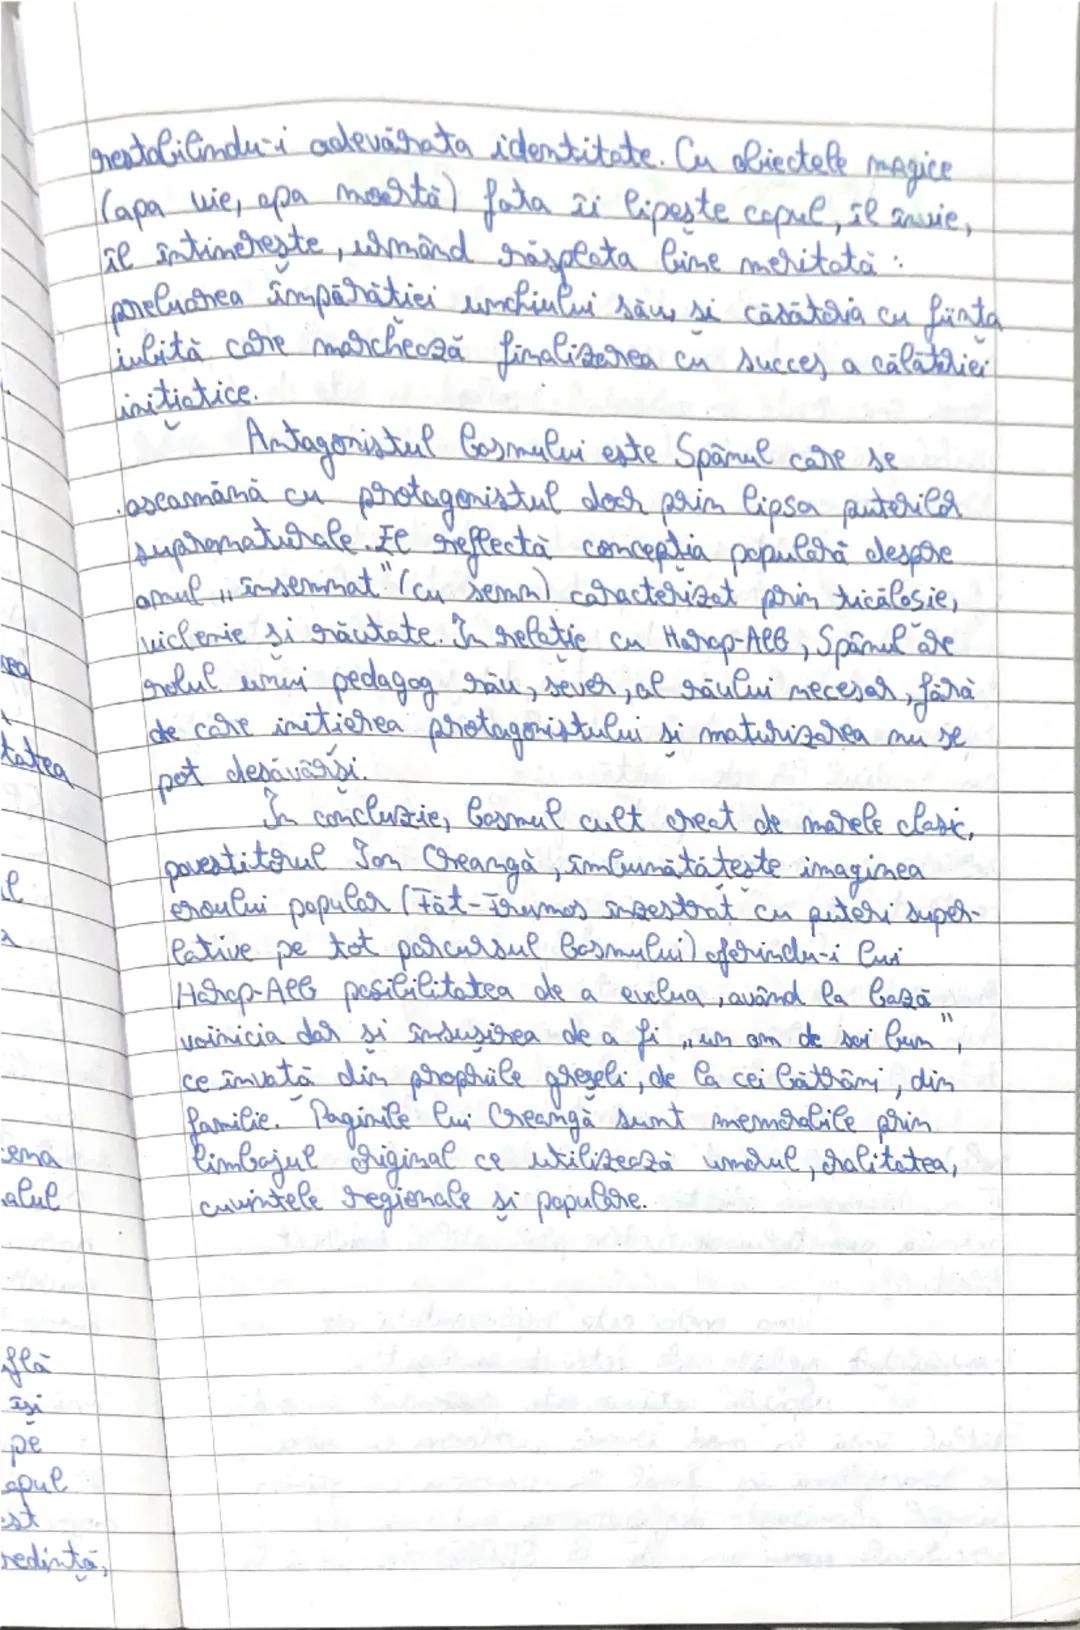 restabilindu-i adevărata identitate. Cu obiectele magice
(apa vie, apa moartă) fata îi lipește capul, îl învie,
îl întinerește, urmând răsplata bine meritată :
preluarea împărăției unchiului său, și căsătoria cu ființa
iubită care marchează finalizarea cu succes a călătoriei
inițiatice.
Antagonistul basmului este Spânul care se
aseamănă cu protagonistul doar prin lipsa puterilor
supranaturale. El reflectă concepția populară despre
omul „însemnat" (cu semn) caracterizat prin ticăloșie,
viclenie și răutate. În relație cu Harap-Alb, Spânul are
rolul unui pedagog rău, sever, al răului necesar, fără
de care inițierea protagonistului și maturizarea nu se
pot desăvârși.
În concluzie, basmul cult creat de marele clasic,
povestitorul Ion Creangă, îmbunătățește imaginea
eroului popular (Făt-Frumos înzestrat cu puteri super-
lative pe tot parcursul basmului) oferindu-i lui
Harap-Alb posibilitatea de a evolua, având la bază
voinicia dar și însușirea de a fi „un om de soi bun",
ce învață din propriile greșeli, de la cei bătrâni, din
familie. Paginile lui Creangă sunt memorabile prin
limbajul original ce utilizează umorul, oralitatea,
cuvintele regionale și populare.
sea
tatea
ema
alul
află
își
pe
apul
est
redință,